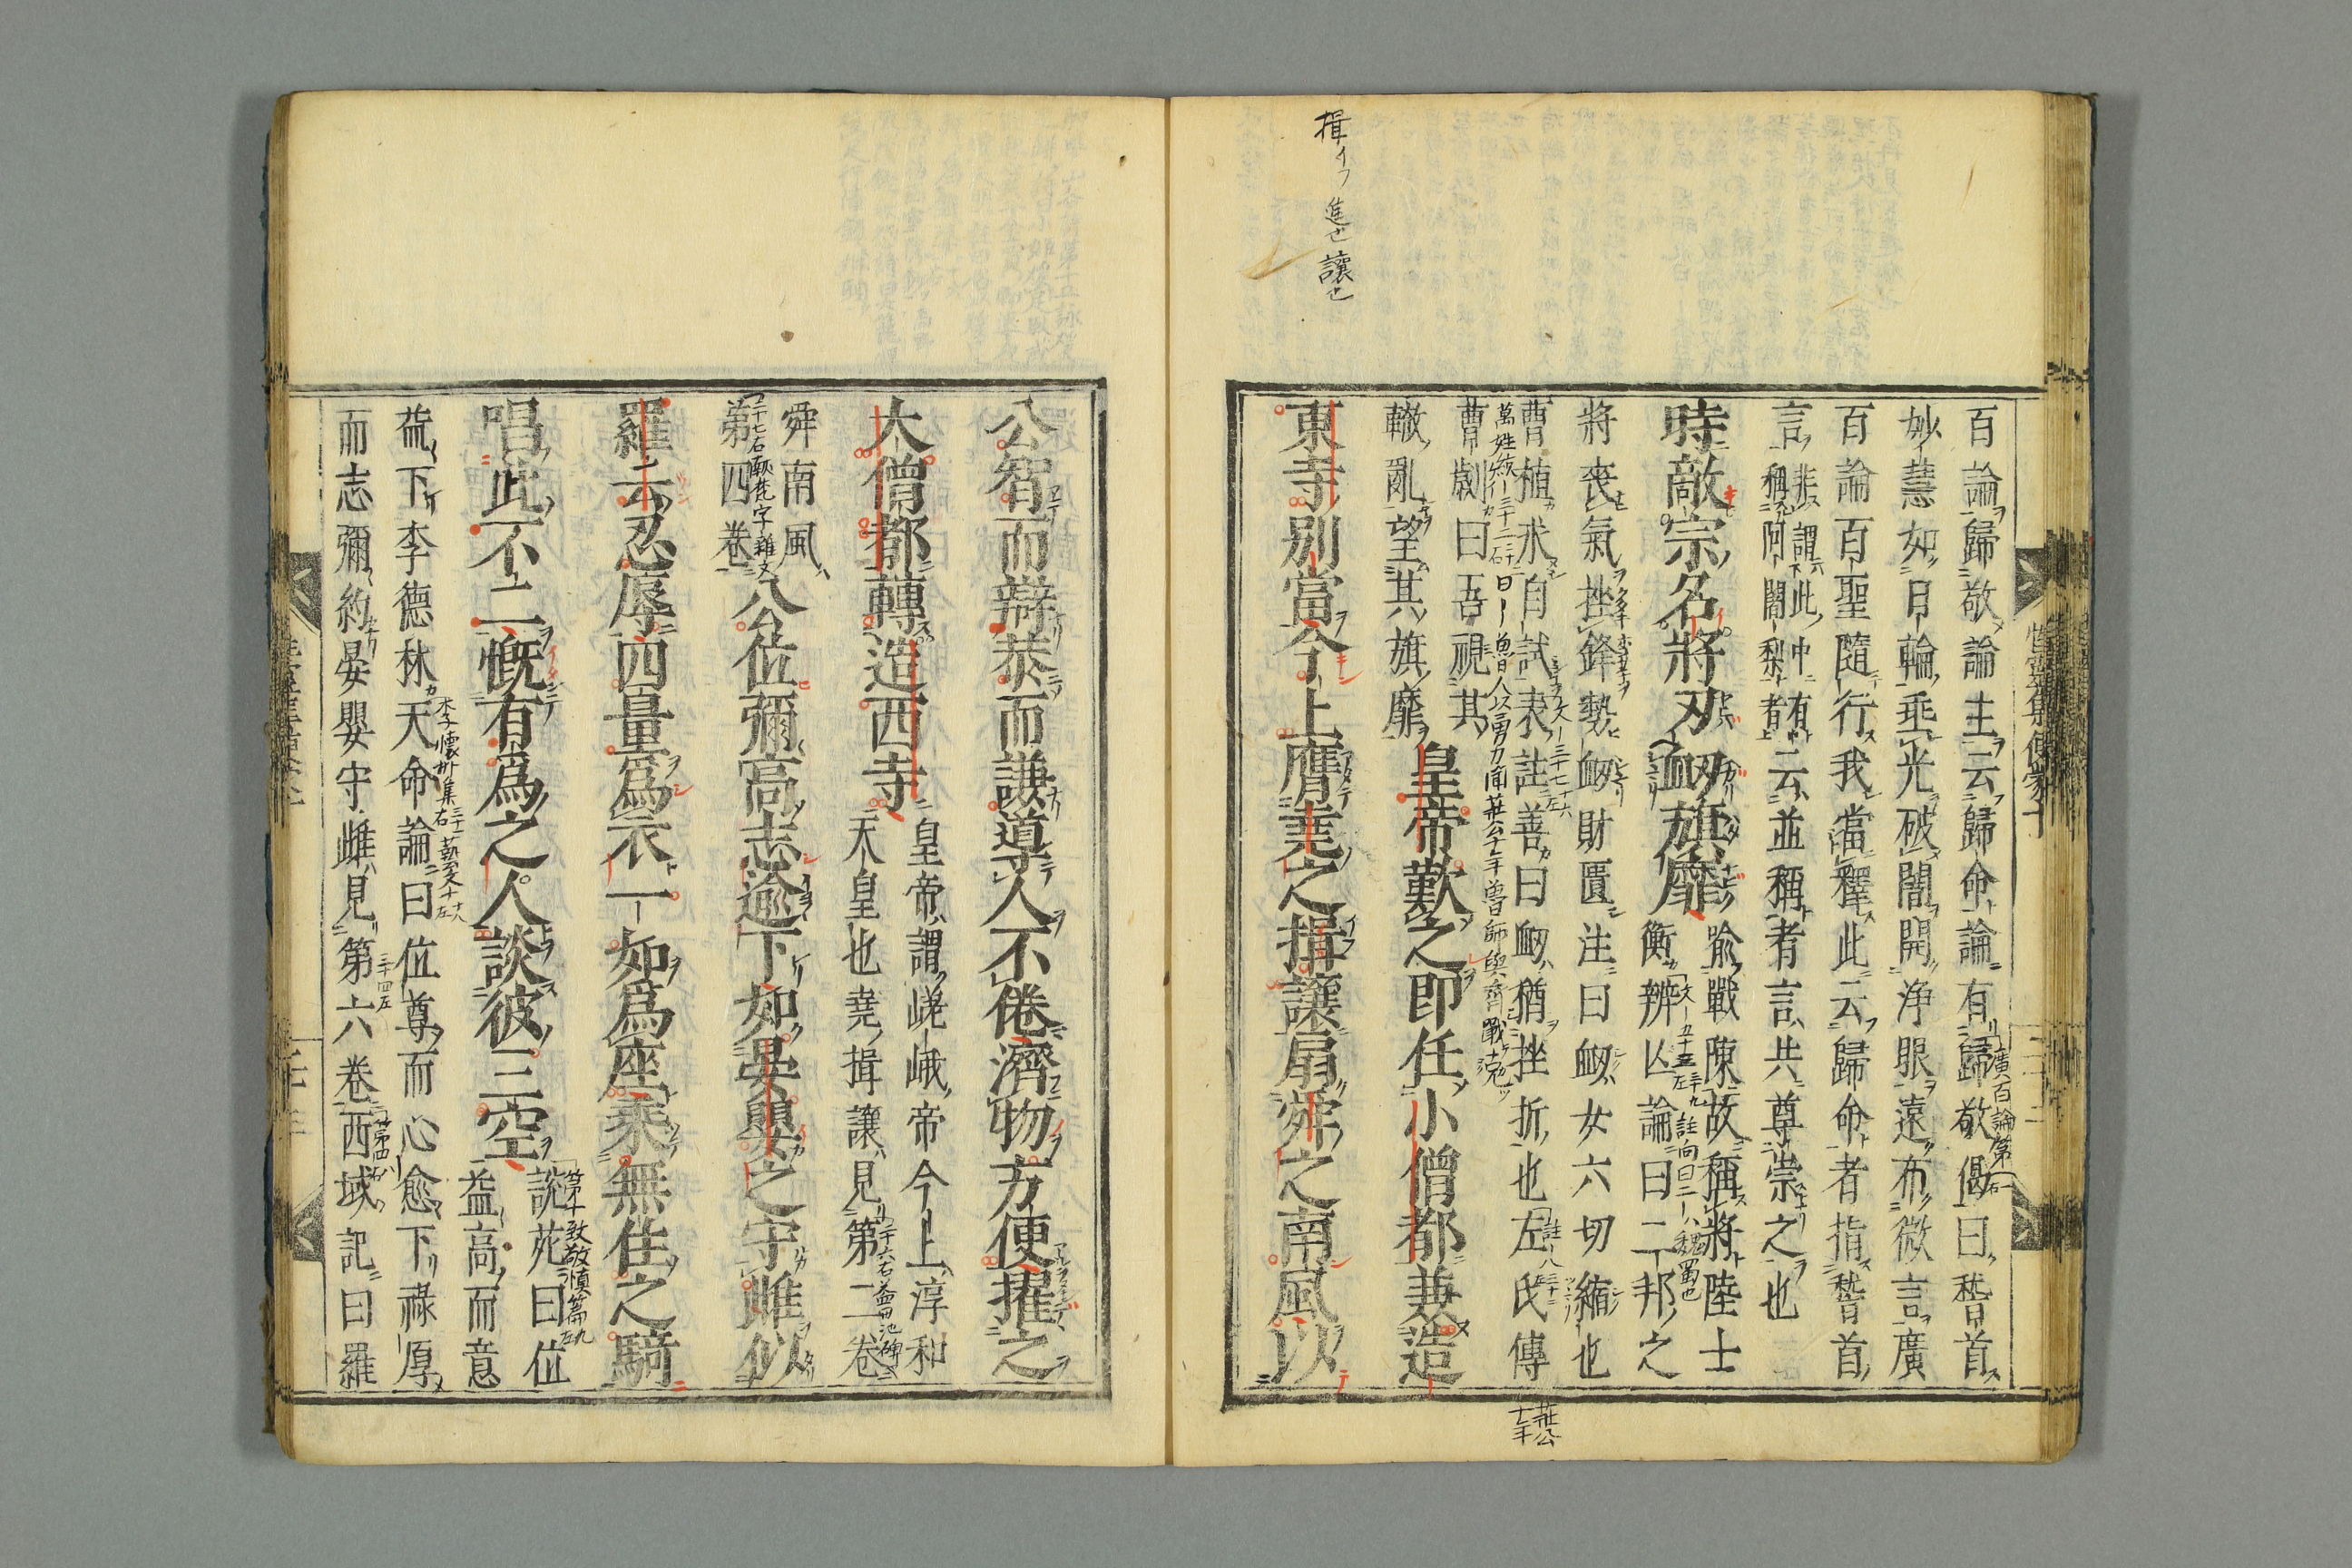 揖イフ進也讓也
百論歸敬論主云歸命論有歸敬偈曰稽首
廣百論第一
妙慧如日輪乖光破闇開浄眼遠布微言廣
百論百聖隨行我當釋此云歸命者指稽首
言非謂此中有
稱阿闍梨者二云並稱者言共尊崇之也
時敵宗名將刃衂旗靡
喩戰陳故稱將陸士
衡辨亡論曰二邦之
將喪氣挫鋒勢衂財匱注曰衂女六切縮也
曹植求自試表註善曰衂猶挫折也左氏傳
莊公
十年
曹劌曰吾視其
轍亂望其旗靡
皇帝歎之即任小僧都兼造
東寺別當今上膺堯之揖讓扇舜之南風以
公智而辯恭而謙導人不倦濟物方便擢之
大僧都轉造西寺
皇帝謂嵯峨帝今上淳和
天皇也堯揖讓見第二卷
舜南風
第四卷
公位彌高志逾下如晏嬰之守雌似
羅云忍辱四量爲衣一如爲座乘無住之騎
唱此不二慨有爲之人談彼三空
說苑曰位
益高而意
第十致敬慎篇
益下李德林天命論曰位尊而心愈下祿厚
而志彌約晏嬰守雌見第六卷西域記曰羅